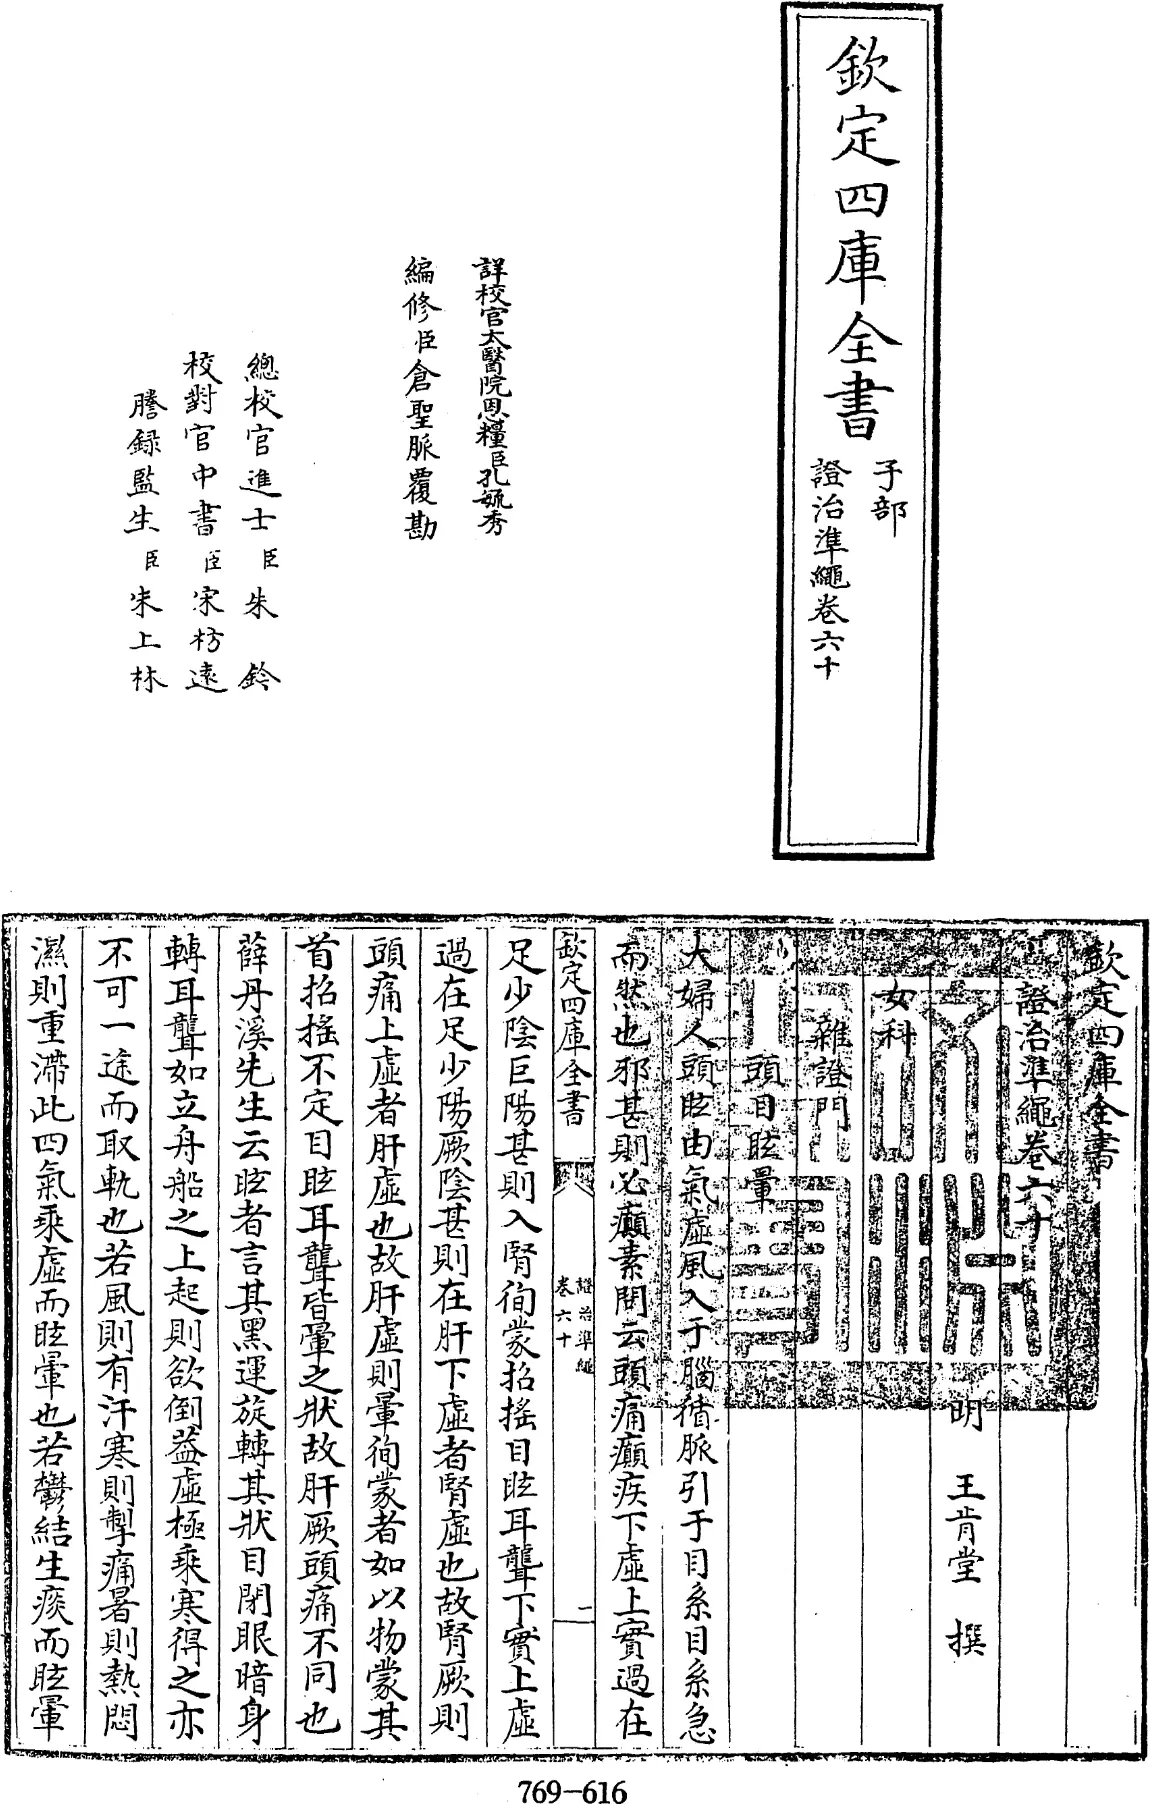 欽定四庫全書
子部
證治準繩卷六十
詳校官太醫院恩糧臣孔毓秀
編修臣倉聖脈覆勘
總校官進士臣朱鈐
校對官中書臣宋枋遠
謄録監生臣朱上林
欽定四庫全書
證治準繩卷六十
明 王肯堂 撰
女科
雜證門
頭目眩暈
大婦人頭眩由氣虛風入于腦循脈引于目系目系急
而然也邪甚則必癲素問云頭痛癲疾下虛上實過在
欽定四庫全書
證治準繩
卷六十
一
足少陰巨陽甚則入腎徇蒙招搖目眩耳聾下實上虛
過在足少陽厥陰甚則在肝下虛者腎虛也故腎厥則
頭痛上虛者肝虛也故肝虛則暈徇蒙者如以物蒙其
首招搖不定目眩耳聾皆暈之狀故肝厥頭痛不同也
薛丹溪先生云眩者言其黑運旋轉其狀目閉眼暗身
轉耳聾如立舟船之上起則欲倒蓋虛極乘寒得之亦
不可一途而取軌也若風則有汗寒則掣痛暑則熱悶
濕則重滯此四氣乘虛而眩暈也若鬱結生痰而眩暈
769-616